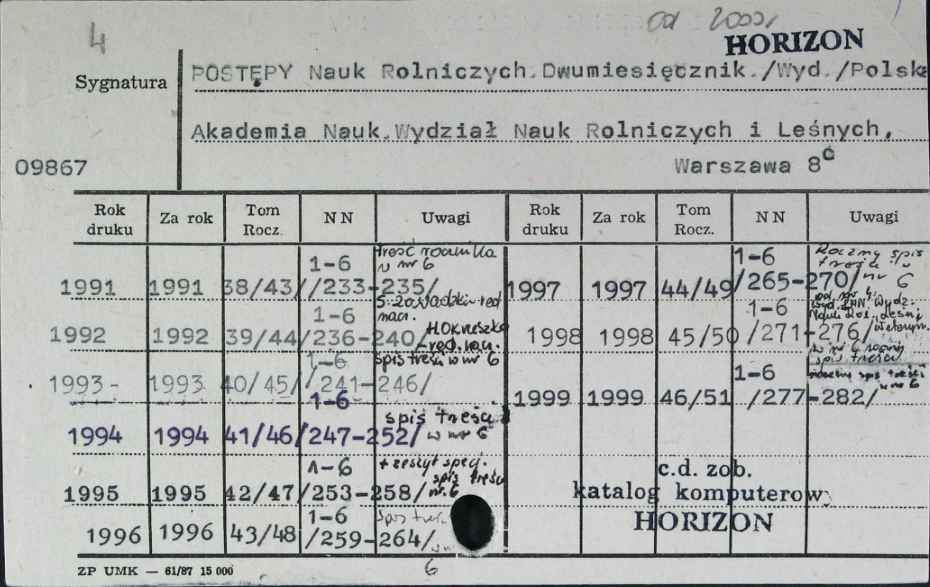 4
od 2000r
HORIZON
Sygnatura
POSTĘPY Nauk Rolniczych.Dwumiesięcznik./Wyd./Polska
Akademia Nauk.Wydział Nauk Rolniczych i Leśnych,
09867
Warszawa 8°
Rok druku Za rok Tom Rocz. N N Uwagi Rok druku Za rok Tom Rocz. N N Uwagi
1991 1991 38/43/ 1-6 /233-235/ treść rocznika w nr 6
1997 1997 44/49 1-6 /265-270/ Roczny spis treści w nr 6
1992 1992 39/44/ 1-6 /236-240/ red. nacz.
1998 1998 45/50 1-6 /271-276/ od nr 4 Wyd. PAN, Wydz. Nauk Rol., Leśn. i Weteryn. w nr 6 spis treści
1993- 1993 40/45/ 1-6 /241-246/ spis treści w nr 6
1999 1999 46/51 1-6 /277-282/ roczny spis treści w nr 6
1994 1994 41/46 1-6 /247-252/ spis treści w nr 6
1995 1995 42/47 1-6 /253-258/ + zeszyt spec. spis treści nr. 6
1996 1996 43/48 1-6 /259-264/ spis treści 6
c.d. zob.
katalog komputerow
HORIZON
ZP UMK — 61/87 15 000